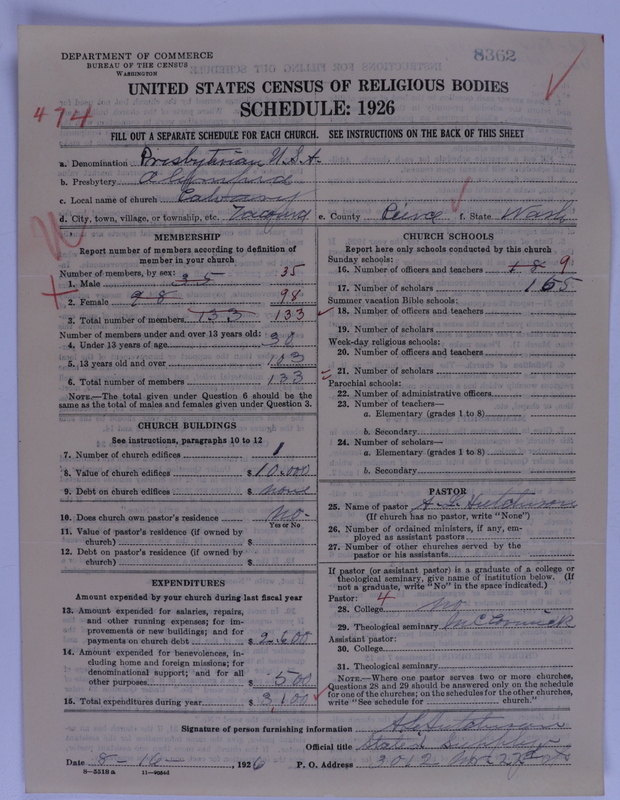 DEPARTMENT OF COMMERCE
BUREAU OF THE CENSUS
WASHINGTON
8362
UNITED STATES CENSUS OF RELIGIOUS BODIES
SCHEDULE: 1926
474
FILL OUT A SEPARATE SCHEDULE FOR EACH CHURCH. SEE INSTRUCTIONS ON THE BACK OF THIS SHEET
a. Denomination Presbyterian U.S.A.
b. Presbytery Olympia
c. Local name of church Calvary
d. City, town, village, or township, etc. Tacoma e. County Pierce f. State Wash
MEMBERSHIP
Report number of members according to definition of
member in your church
Number of members, by sex:
1. Male 35 35
2. Female 98 98
3. Total number of members 133 133
Number of members under and over 13 years old:
4. Under 13 years of age 30
5. 13 years old and over 103
6. Total number of members 133
NOTE.—The total given under Question 6 should be the
same as the total of males and females given under Question 3.
CHURCH BUILDINGS
See instructions, paragraphs 10 to 12
7. Number of church edifices 1
8. Value of church edifices $ 10.000
9. Debt on church edifices $ none
10. Does church own pastor's residence no-
Yes or No
11. Value of pastor's residence (if owned by
church) $
12. Debt on pastor's residence (if owned by
church) $
EXPENDITURES
Amount expended by your church during last fiscal year
13. Amount expended for salaries, repairs,
and other running expenses; for im-
provements or new buildings; and for
payments on church debt $ 2.600
14. Amount expended for benevolences, in-
cluding home and foreign missions; for
denominational support; and for all
other purposes $ 500
15. Total expenditures during year $ 3,100
CHURCH SCHOOLS
Report here only schools conducted by this church
Sunday schools:
16. Number of officers and teachers 9
17. Number of scholars 165
Summer vacation Bible schools:
18. Number of officers and teachers
19. Number of scholars
Week-day religious schools:
20. Number of officers and teachers
21. Number of scholars
Parochial schools:
22. Number of administrative officers
23. Number of teachers—
a. Elementary (grades 1 to 8)
b. Secondary
24. Number of scholars—
a. Elementary (grades 1 to 8)
b. Secondary
PASTOR
25. Name of pastor A. L. Hutchison
(If church has no pastor, write "None")
26. Number of ordained ministers, if any, em-
ployed as assistant pastors
27. Number of other churches served by the
pastor or his assistants
If pastor (or assistant pastor) is a graduate of a college or
theological seminary, give name of institution below. (If
not a graduate, write "No" in the space indicated.)
Pastor: 4
28. College no
29. Theological seminary McCormick
Assistant pastor:
30. College
31. Theological seminary
NOTE.—Where one pastor serves two or more churches,
Questions 28 and 29 should be answered only on the schedule
for one of the churches; on the schedules for the other churches,
write "See schedule for church."
Signature of person furnishing information A L Hutchison
Official title Stated Supply
Date 8-16-, 1926 P. O. Address 3012 No 25th
8-5518a 11-9054d